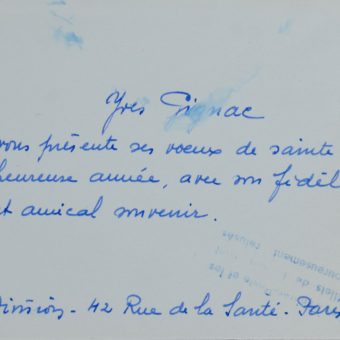 Yves Gignac
vous présente ses voeux de sainte
heureuse année, avec son fidèl
et amical souvenir.
Division - 42 Rue de la Santé - Paris